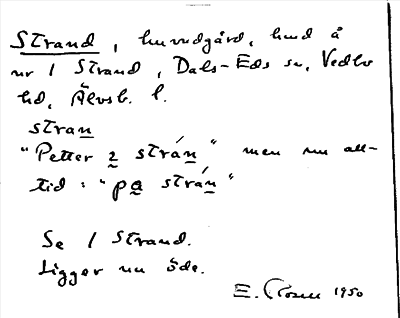 Strand, huvudgård, hmd å
nr 1 Strand, Dals-Eds sn, Vedbo
hd, Älvsb. l.
stran
"Petter i strán" men nu all-
tid: "pa strán"
Se 1 Strand.
Ligger nu öde.
E. 1950